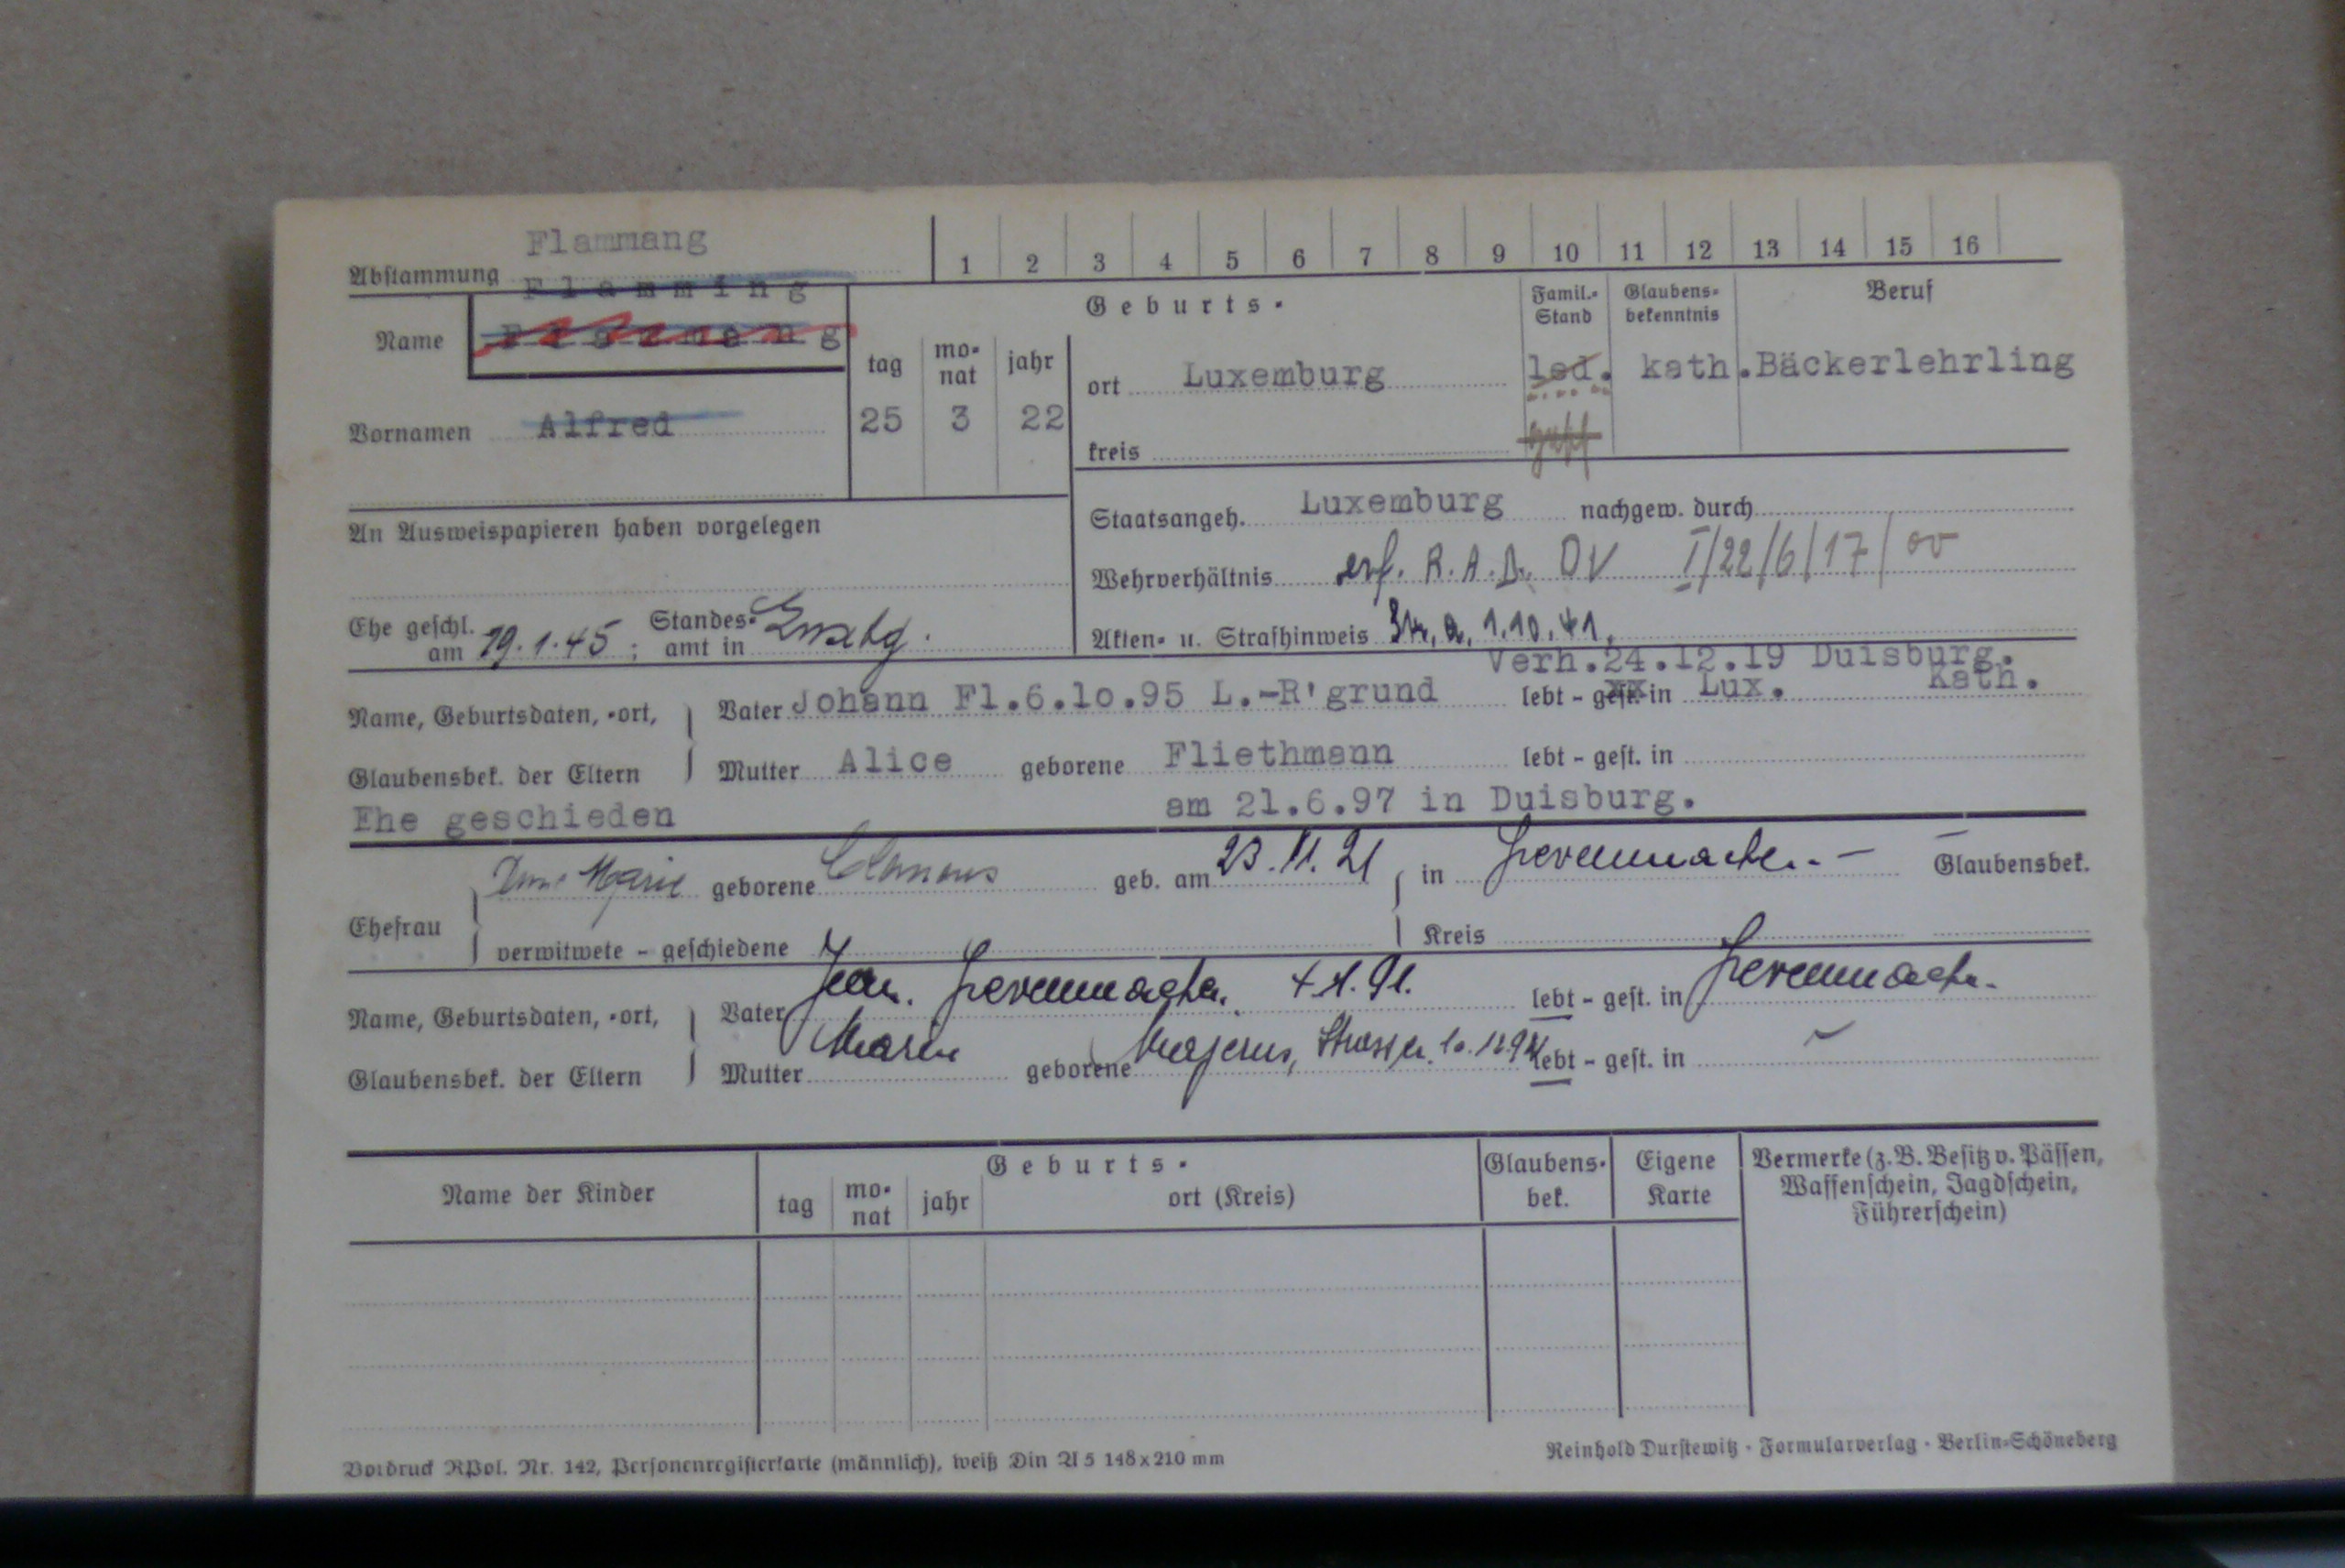 Flammang
Abstammung
1 2 3 4 5 6 7 8 9 10 11 12 13 14 15 16
Flamming
Name
Geburts-
Famil.-Stand
Glaubens-bekenntnis
Beruf
tag mo-nat jahr
ort Luxemburg
led. kath. Bäckerlehrling
Vornamen Alfred
25 3 22
kreis
An Ausweispapieren haben vorgelegen
Staatsangeh. Luxemburg nachgew. durch
Wehrverhältnis erf. R.A.D. OV I/22/6/17/00
Ehe geschl. am 19.1.45; Standes-amt in Luxbg.
Akten- u. Strafhinweis 1.10.41.
Verh.24.12.19 Duisburg.
Name, Geburtsdaten, -ort, Vater Johann Fl.6.10.95 L.-R'grund lebt - gest. in Lux. Kath.
Glaubensbek. der Eltern Mutter Alice geborene Fliethmann lebt - gest. in
Ehe geschieden am 21.6.97 in Duisburg.
Marie geborene Clemens geb. am 23.11.21 in Grevenmacher. - Glaubensbek.
Ehefrau
verwitwete - geschiedene Kreis
Name, Geburtsdaten, -ort, Vater Jean. Grevenmacher. lebt - gest. in Grevenmacher.
Glaubensbek. der Eltern Mutter Maria geborene Majerus, lebt - gest. in
Name der Kinder
Geburts-
tag mo-nat jahr ort (Kreis)
Glaubens-bek.
Eigene Karte
Vermerke (z.B. Besitz v. Pässen,
Waffenschein, Jagdschein,
Führerschein)
Vordruck RPol. Nr. 142, Personenregisterkarte (männlich), weiß Din A 5 148x210 mm
Reinhold Durstewitz · Formularverlag · Berlin-Schöneberg